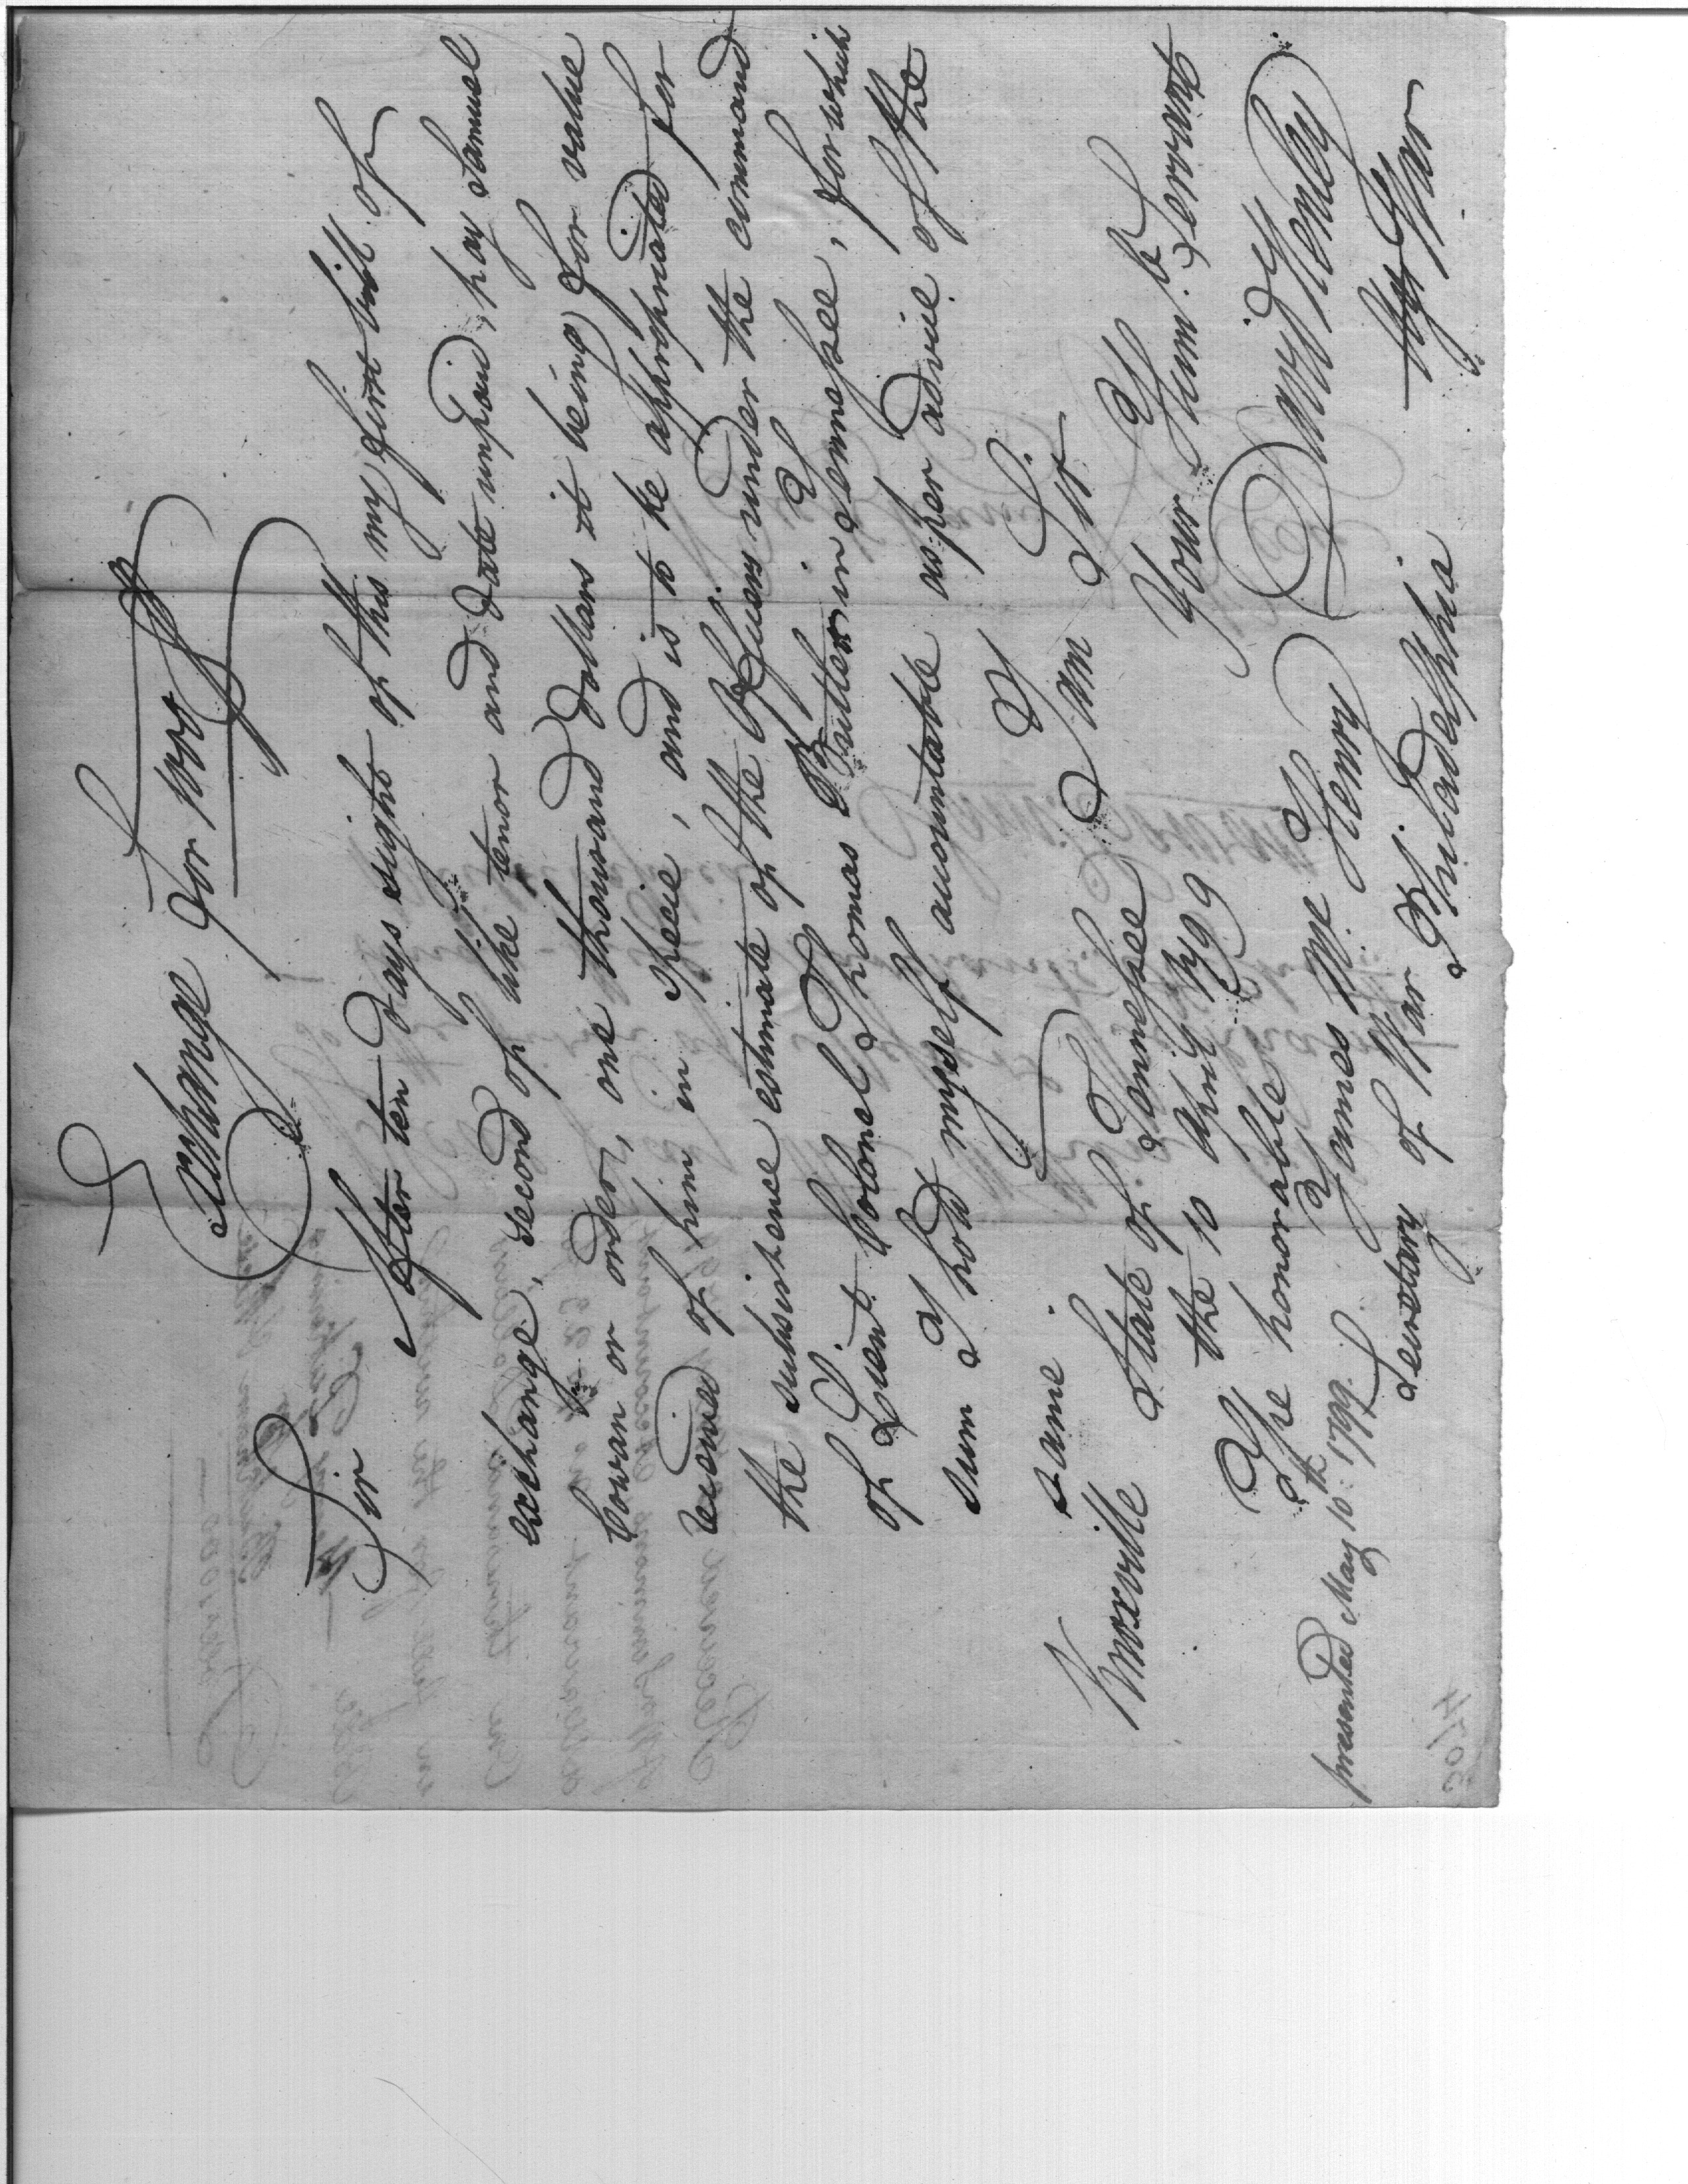 Exchange for 1000 D
Sir
After ten days sight of this my first bill of
exchange, second of like tenor and date unpaid, pay Samuel
Cowan or order, one thousand dollars it being for value
received of him in specie, and is to be appropriated for
the subsistence estimate of the Officers under the command
of Lieut Colonel Thomas Butler in Tennessee, for which
sum I hold myself accountable as per advice of the
same.
I am Sir
Your Hum. Servant
David Henley
Ag War
Knoxville State of Tennessee
the 10 April 1799
The honorable
James McHenry
Secretary of War Philadelphia
presented May 10th 1799.